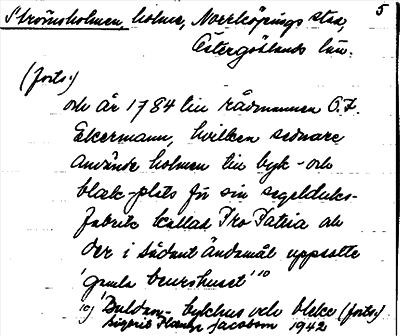 Strömsholmen, holme, Norrköpings stad, 5
Östergötlands län.
(forts.)
och år 1784 till rådmannen O.J.
Ekermann, hvilken sednare
använde holmen till byk- och
blek-plats för sin segelduks-
fabrik kallad Pro Patria och
der i sådant ändamål uppsatte
'gamla brunshuset' 10
10) bykhus och bleke (forts.)
Jacobson 1942